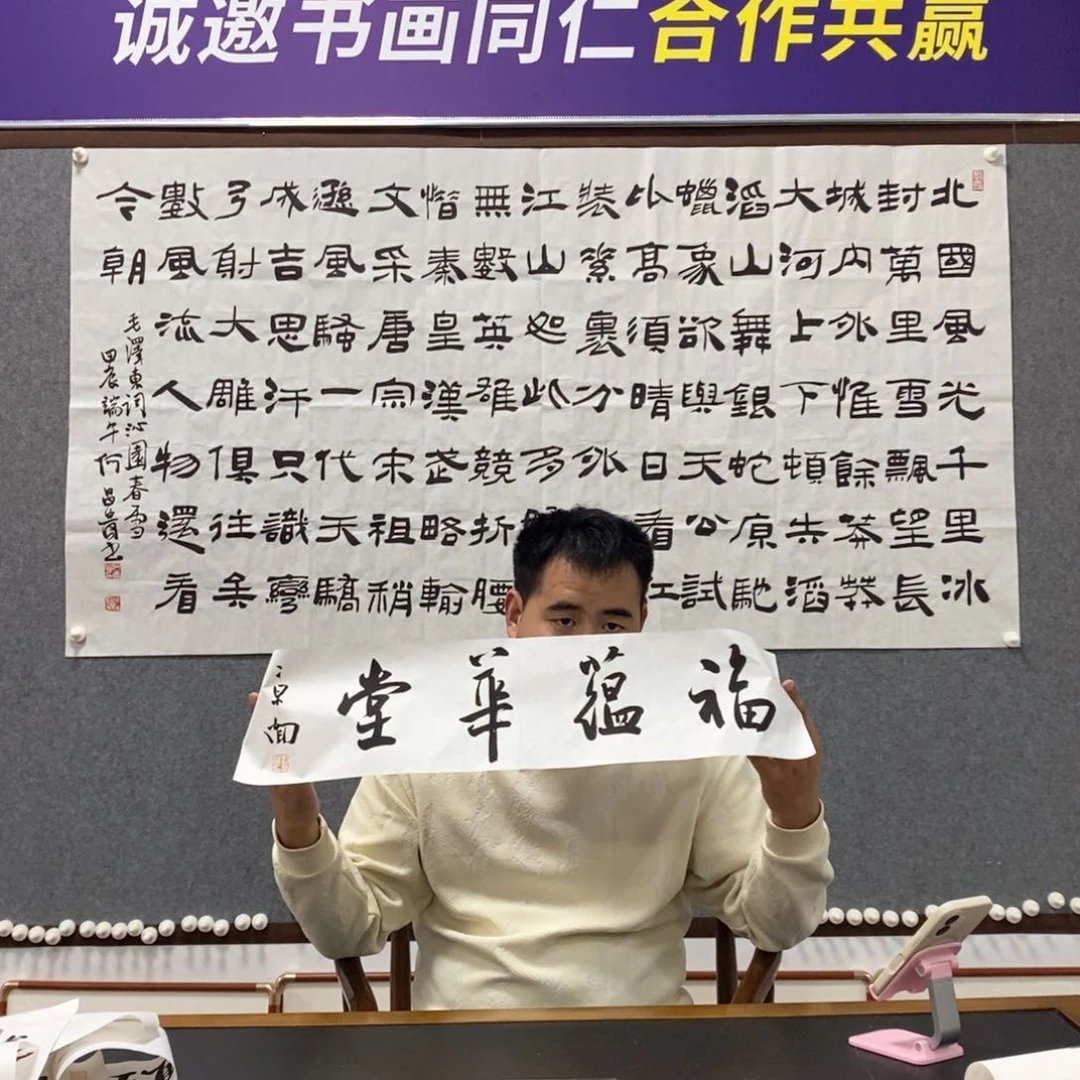 诚邀书画同仁合作共赢
北國風光千里冰
封萬里雪飄望長
城内外惟餘莽莽
大河上下頓失滔
滔山舞銀蛇原馳
蠟象欲與天公試
比高須晴日看紅
裝素裹分外
江山如此多
無數英雄競折腰
惜秦皇漢武略輸
文采唐宗宋祖稍
遜風騷一代天驕
成吉思汗只識彎
弓射大雕俱往矣
數風流人物還看
今朝
毛澤東詞沁園春雪
甲辰端午何昌貴书
福蘊華堂